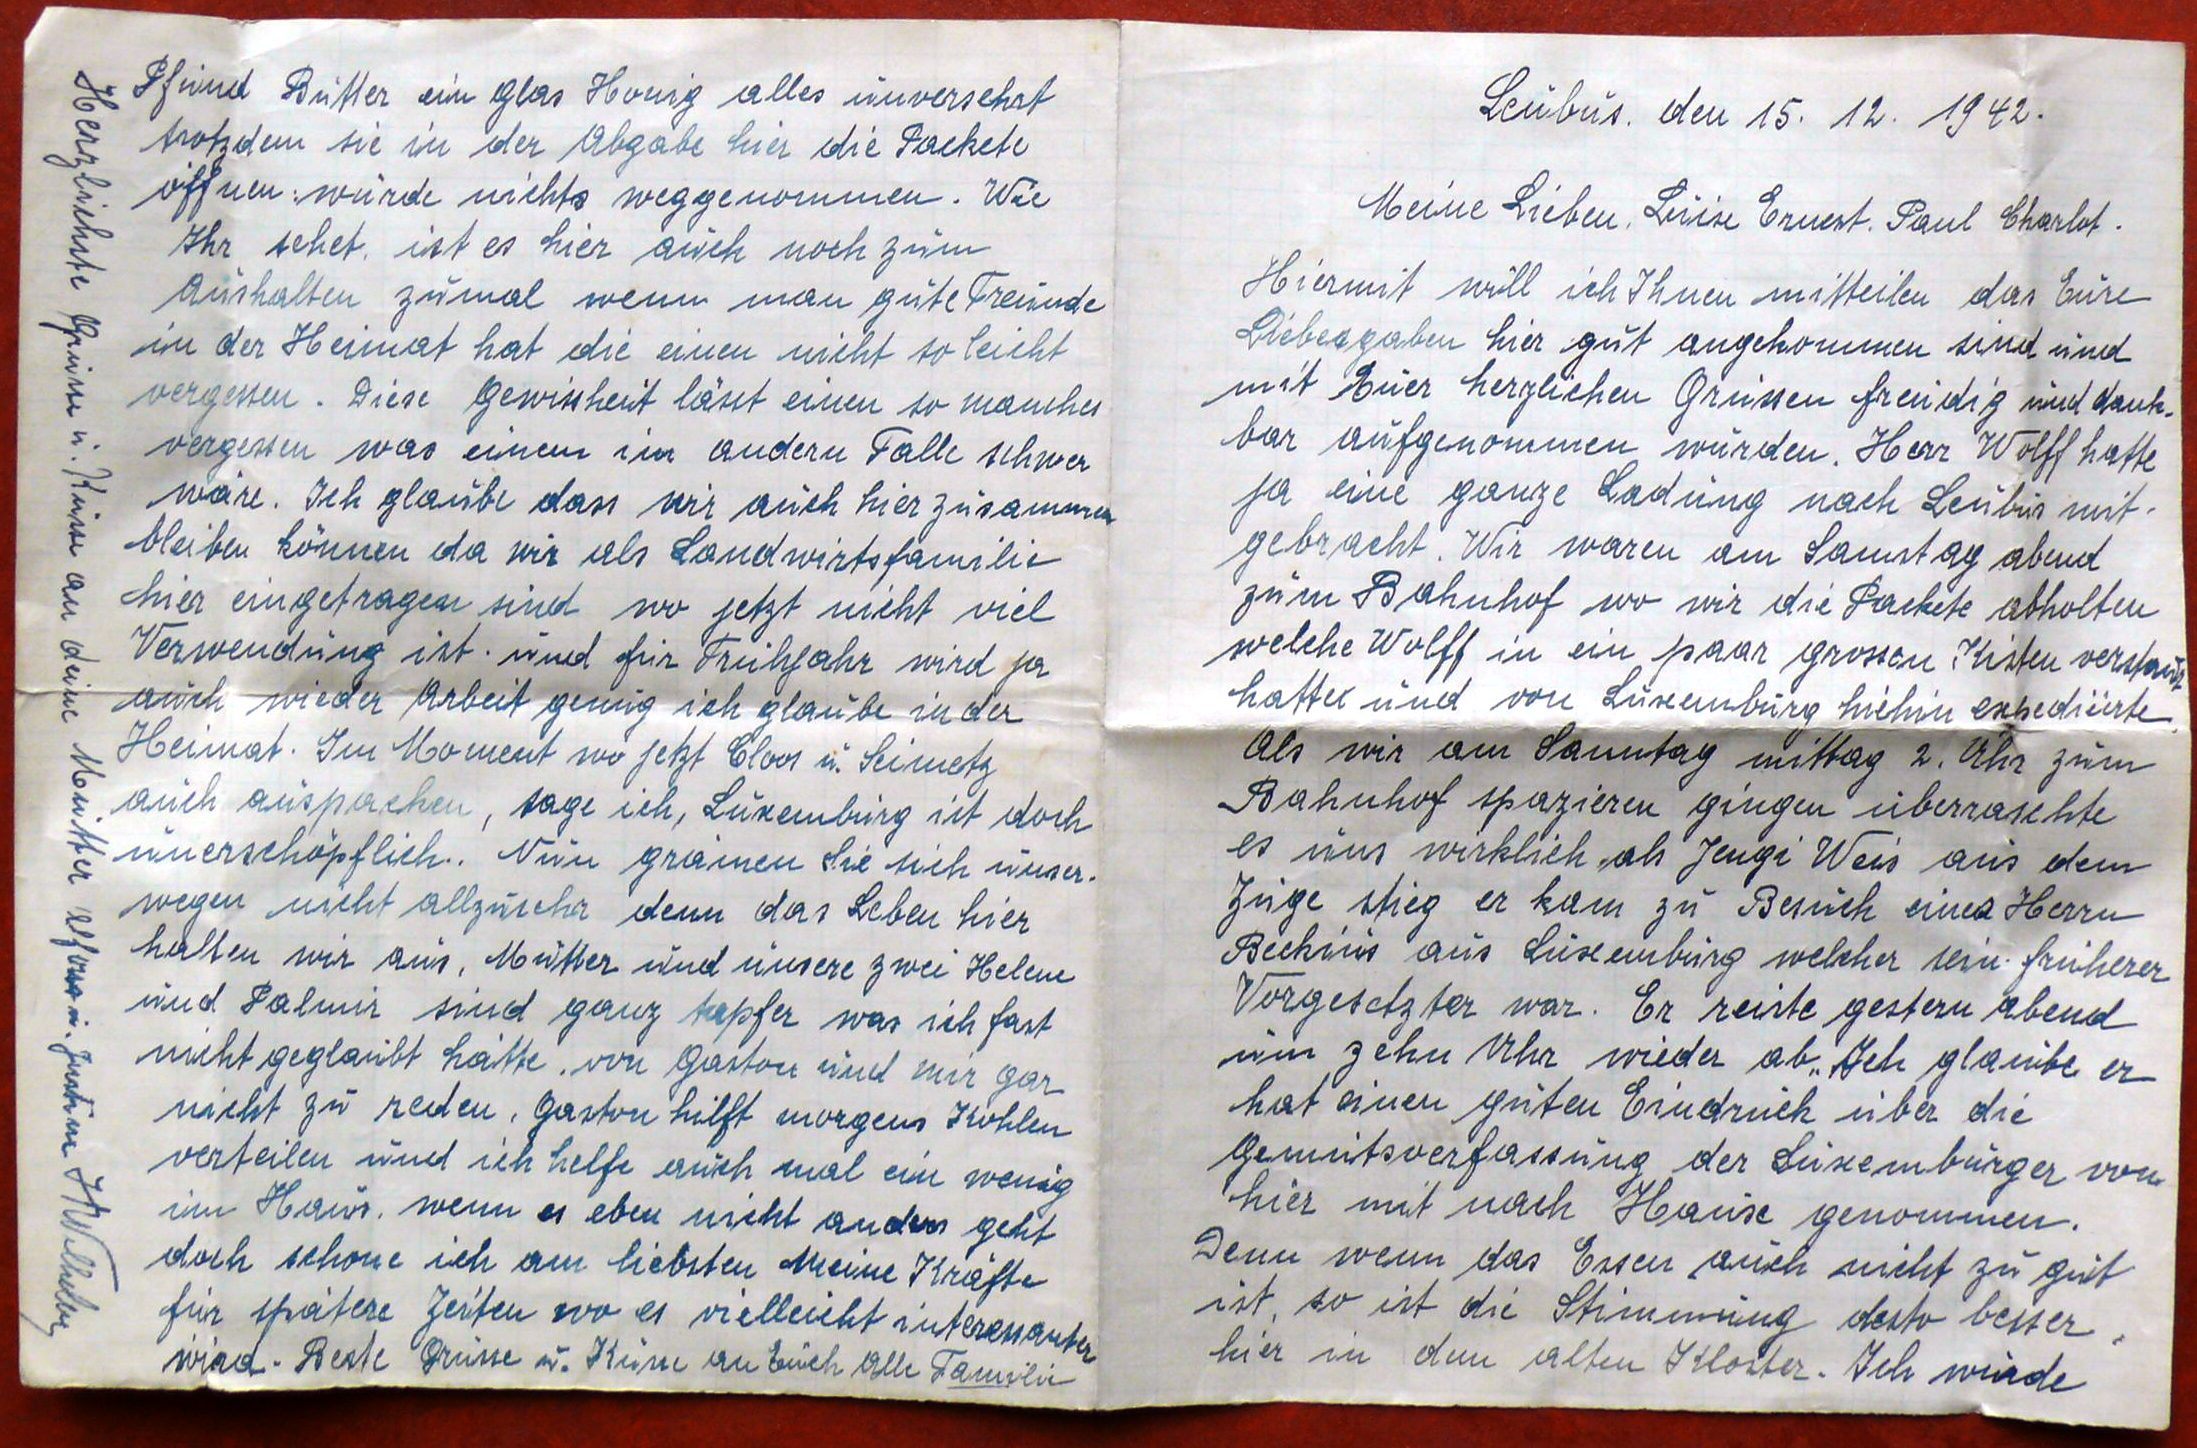 Leubus. den 15. 12. 1942.
Meine Lieben. Luise Ernest. Paul Charlot.
Hiermit will ich Ihnen mitteilen das Eure
Liebesgaben hier gut angekommen sind und
mit Euer herzlichen Grüssen freudig und dank-
bar aufgenommen wurden. Herr Wolff hatte
ja eine ganze Ladung nach Leubus mit-
gebracht. Wir waren am Samstag abend
zum Bahnhof wo wir die Packete abholten
welche Wolff in ein paar grossen Kisten verstaut
hatte und von Luxemburg hiehin expedierte.
Als wir am Sanntag mittag 2. Uhr zum
Bahnhof spazieren gingen überraschte
es uns wirklich als Jengi Weis aus dem
Zuge stieg er kam zu Besuch eines Herrn
Beckius aus Luxemburg welcher sein früherer
Vorgesetzter war. Er reiste gestern Abend
um zehn Uhr wieder ab. Ich glaube er
hat einen guten Eindruck über die
Gemütsverfassung der Luxemburger von
hier mit nach Hause genommen.
Denn wenn das Essen auch nicht zu gut
ist, so ist die Stimmung desto besser.
hier in dem alten Kloster. Ich wurde
Pfund Butter ein Glas Honig alles unversehrt
trotzdem sie in der Abgabe hier die Packete
öffnen: wurde nichts weggenommen. Wie
Ihr sehet. ist es hier auch noch zum
Aushalten zumal wenn man gute Freunde
in der Heimat hat die einen nicht so leicht
vergessen. Diese Gewissheit lässt einen so manches
vergessen was einem im andern Falle schwer
wäre. Ich glaube dass wir auch hier zusammen
bleiben können da wir als Landwirtsfamilie
hier eingetragen sind wo jetzt nicht viel
Verwendung ist. und für Frühjahr wird ja
auch wieder Arbeit genug ich glaube in der
Heimat. Im Moment wo jetzt Cloos u. Seimetz
auch auspacken, sage ich, Luxemburg ist doch
unerschöpflich. Nun grämen Sie sich unser-
wegen nicht allzusehr denn das Leben hier
halten wir aus, Mutter und unsere zwei Helene
und Palmir sind ganz tapfer was ich fast
nicht geglaubt hätte. von Gaston und mir gar
nicht zu reden. Gaston hilft morgens Kohlen
verteilen und ich helfe auch mal ein wenig
im Haus. wenn es eben nicht anders geht
doch schone ich am liebsten Meine Kräfte
für spätere Zeiten wo es vielleicht interessanter
wird. Beste Grüsse u. Küsse an Euch Alle Familie
Herzlichste Grüsse u. Küsse an deine Mutter u. Justine